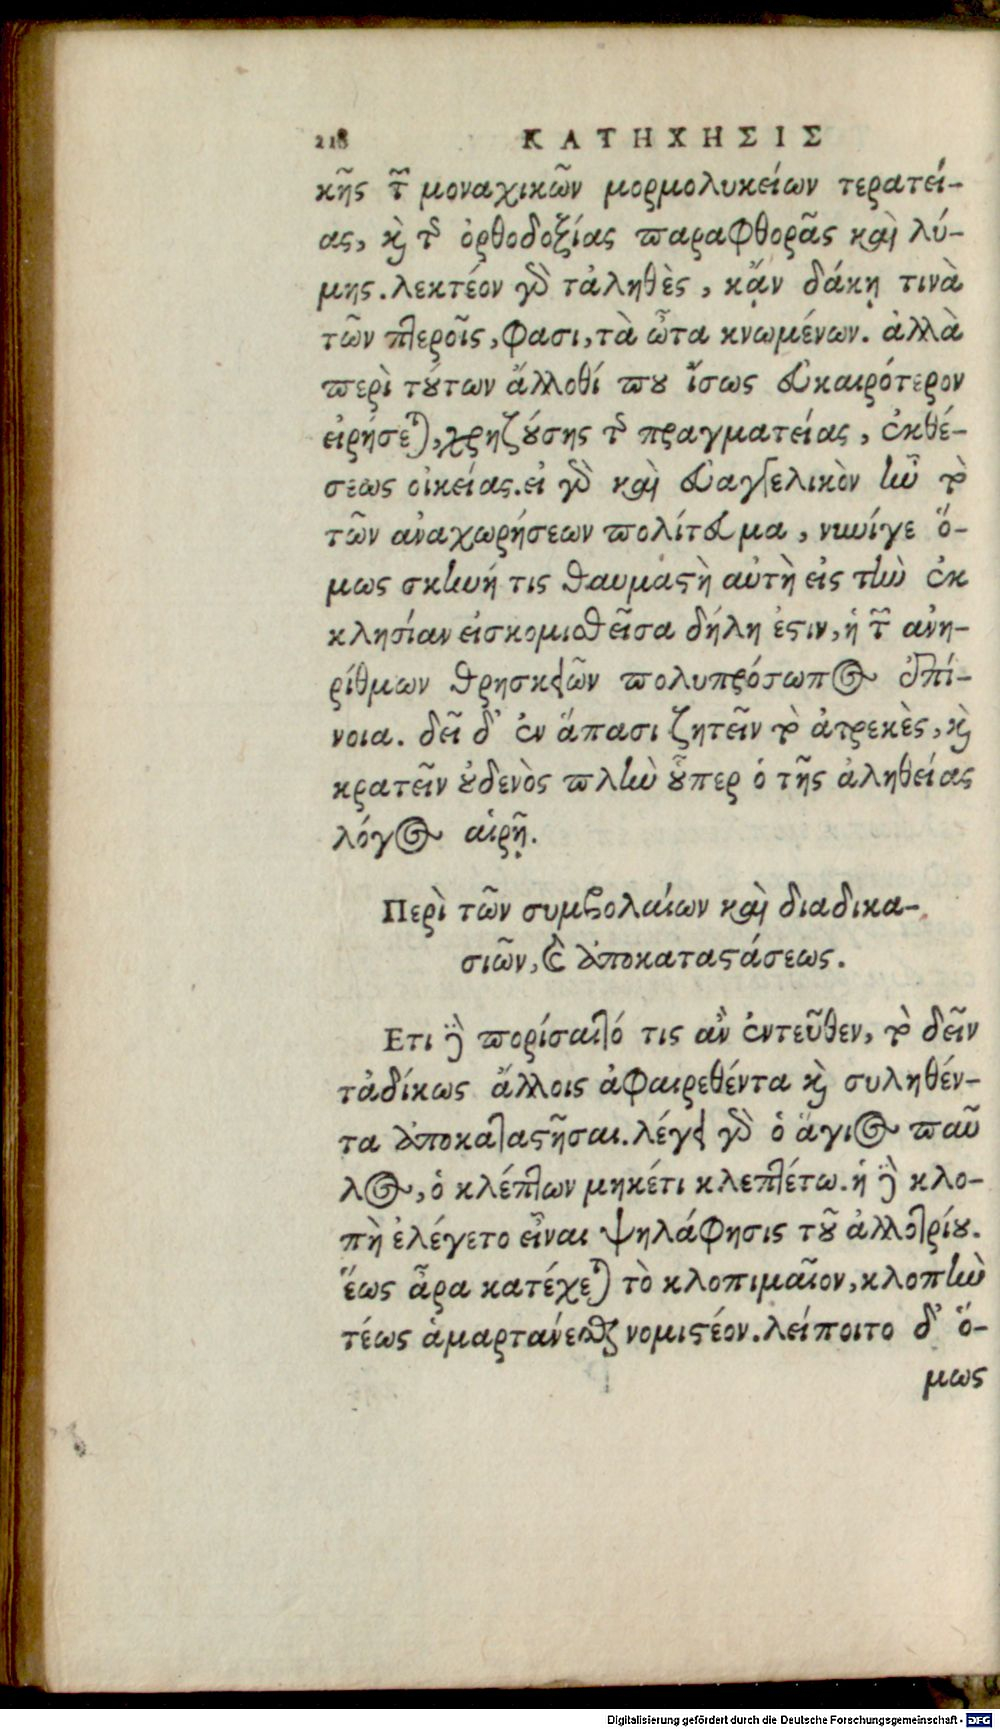 218 ΚΑΤΗΧΗΣΙΣ
κῆς τῶν μοναχικῶν μορμολυκείων τερατεί-
ας, καὶ τῆς ὀρθοδοξίας παραφθορᾶς καὶ λύ-
μης. λεκτέον γὰρ τἀληθὲς, κᾄν δάκῃ τινὰ
τῶν πτεροῖς, φασι, τὰ ὦτα κνωμένων. ἀλλὰ
περὶ τούτων ἄλλοθί που ἴσως εὐκαιρότερον
εἰρήσεται, χρηζούσης τῆς πραγματείας, ἐκθέ-
σεως οἰκείας. εἰ γὰρ καὶ εὐαγγελικὸν ἦν τὸ
τῶν ἀναχωρήσεων πολίτευμα, νυνίγε ὅ-
μως σκηνή τις θαυμαστὴ αὐτὴ εἰς τὴν ἐκ
κλησίαν εἰσκομισθεῖσα δήλη ἐστιν, ἡ τῶν ἀνη-
ρίθμων θρησκειῶν πολυπρόσωπος ἐπί-
νοια. δεῖ δ' ἐν ἅπασι ζητεῖν τὸ ἀτρεκὲς, καὶ
κρατεῖν οὐδενὸς πλὴν οὗπερ ὁ τῆς ἀληθείας
λόγος αἱρῇ.
Περὶ τῶν συμβολαίων καὶ διαδικα-
σιῶν, καὶ ἀποκαταστάσεως.
Ετι δὲ πορίσαιτό τις ἂν ἐντεῦθεν, τὸ δεῖν
τἀδίκως ἄλλοις ἀφαιρεθέντα καὶ συληθέν-
τα ἀποκαταστῆσαι. λέγει γὰρ ὁ ἅγιος παῦ
λος, ὁ κλέπτων μηκέτι κλεπτέτω. ἡ δὲ κλο-
πὴ ἐλέγετο εἶναι ψηλάφησις τοῦ ἀλλοτρίου.
ἕως ἆρα κατέχεται τὸ κλοπιμαῖον, κλοπὴν
τέως ἁμαρτάνεσθαι νομιστέον. λείποιτο δ' ὅ-
μως
Digitalisierung gefördert durch die Deutsche Forschungsgemeinschaft - DFG